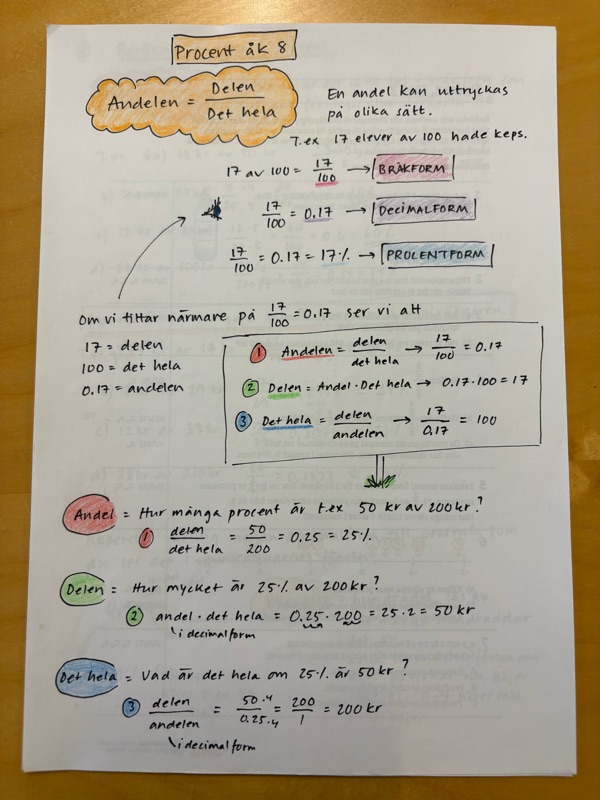 Procent åk 8
Andelen = Delen / Det hela
En andel kan uttryckas
på olika sätt.
T.ex 17 elever av 100 hade keps.
17 av 100 = 17/100 → BRÅKFORM
17/100 = 0.17 → DECIMALFORM
17/100 = 0.17 = 17% → PROCENTFORM
Om vi tittar närmare på 17/100 = 0.17 ser vi att
17 = delen
100 = det hela
0.17 = andelen
1 Andelen = delen / det hela → 17/100 = 0.17
2 Delen = Andel · Det hela → 0.17 · 100 = 17
3 Det hela = delen / andelen → 17/0.17 = 100
Andel = Hur många procent är t.ex 50 kr av 200 kr?
1 delen / det hela = 50/200 = 0.25 = 25%
Delen = Hur mycket är 25% av 200 kr?
2 andel · det hela = 0.25 · 200 = 25 · 2 = 50 kr
i decimalform
Det hela = Vad är det hela om 25% är 50 kr?
3 delen / andelen = 50 · 4 / 0.25 · 4 = 200/1 = 200 kr
i decimalform